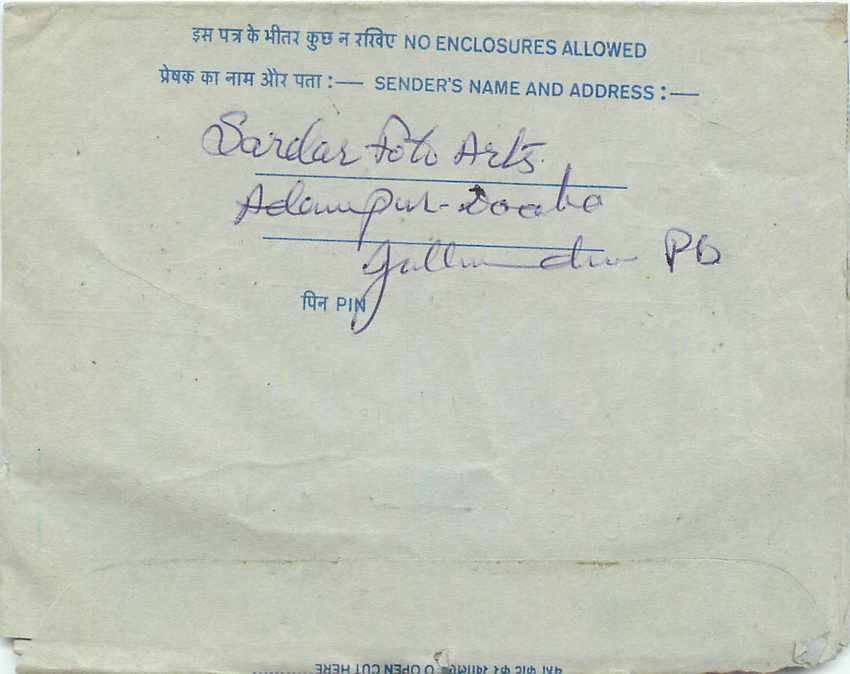 इस पत्र के भीतर कुछ न रखिए NO ENCLOSURES ALLOWED
प्रेषक का नाम और पता :— SENDER'S NAME AND ADDRESS :—
Sardar Foto Arts.
Adampur-Doaba
PB
पिन PIN
TO OPEN CUT HERE